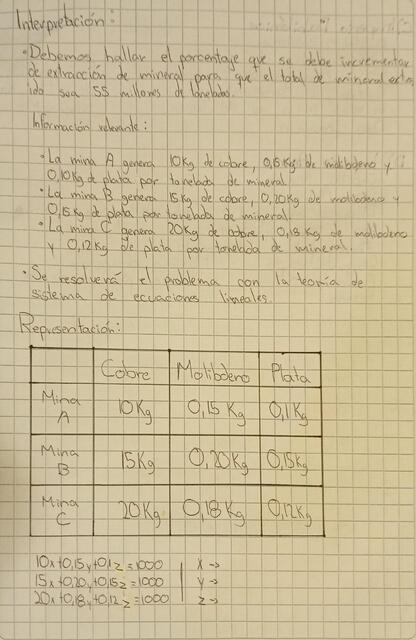 Interpretación:
• Debemos hallar el porcentaje que se debe incrementar
de extracción de mineral para que el total de mineral extra
ido sea 55 millones de toneladas.
Información relevante:
• La mina A genera 10Kg de cobre, 0,15Kg de molibdeno y
0,10Kg de plata por tonelada de mineral.
• La mina B genera 15Kg de cobre, 0,20Kg de molibdeno y
0,15Kg de plata por tonelada de mineral.
• La mina C genera 20Kg de cobre, 0,18 Kg de molibdeno
y 0,12Kg de plata por tonelada de mineral.
• Se resolverá el problema con la teoría de
sistema de ecuaciones lineales.
Representación:
Cobre Molibdeno Plata
Mina A 10Kg 0,15 Kg 0,1Kg
Mina B 15Kg 0,20Kg 0,15Kg
Mina C 20Kg 0,18Kg 0,12Kg
10x+0,15y+0,1z=1000 | x →
15x+0,20y+0,15z=1000 | y →
20x+0,18y+0,12z=1000 | z →